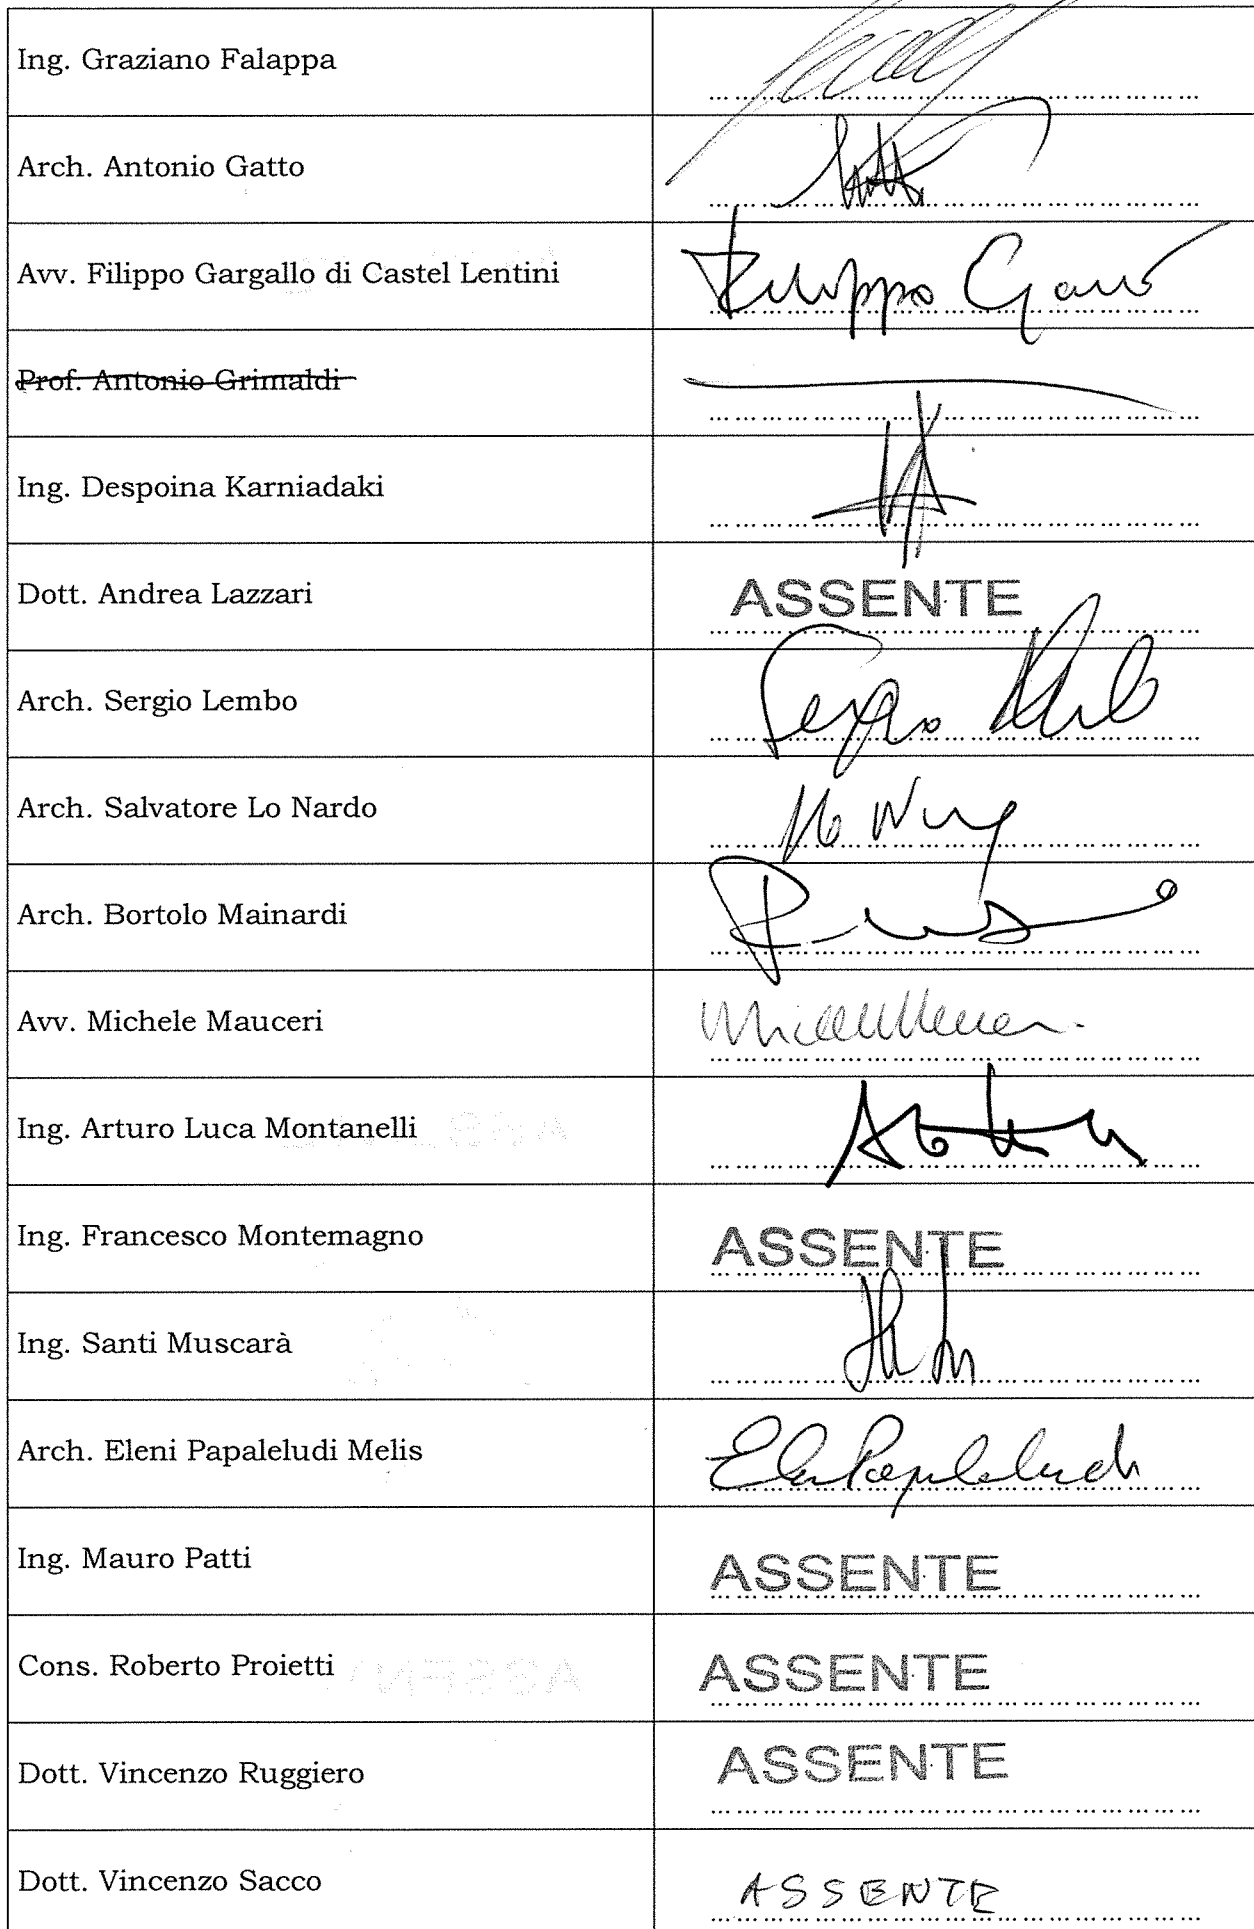 Ing. Graziano Falappa
Arch. Antonio Gatto
Avv. Filippo Gargallo di Castel Lentini
Filippo
Prof. Antonio Grimaldi
Ing. Despoina Karniadaki
Dott. Andrea Lazzari
ASSENTE
Arch. Sergio Lembo
Sergio
Arch. Salvatore Lo Nardo
Arch. Bortolo Mainardi
Avv. Michele Mauceri
Ing. Arturo Luca Montanelli
Ing. Francesco Montemagno
ASSENTE
Ing. Santi Muscarà
Arch. Eleni Papaleludi Melis
Ing. Mauro Patti
ASSENTE
Cons. Roberto Proietti
ASSENTE
Dott. Vincenzo Ruggiero
ASSENTE
Dott. Vincenzo Sacco
ASSENTE